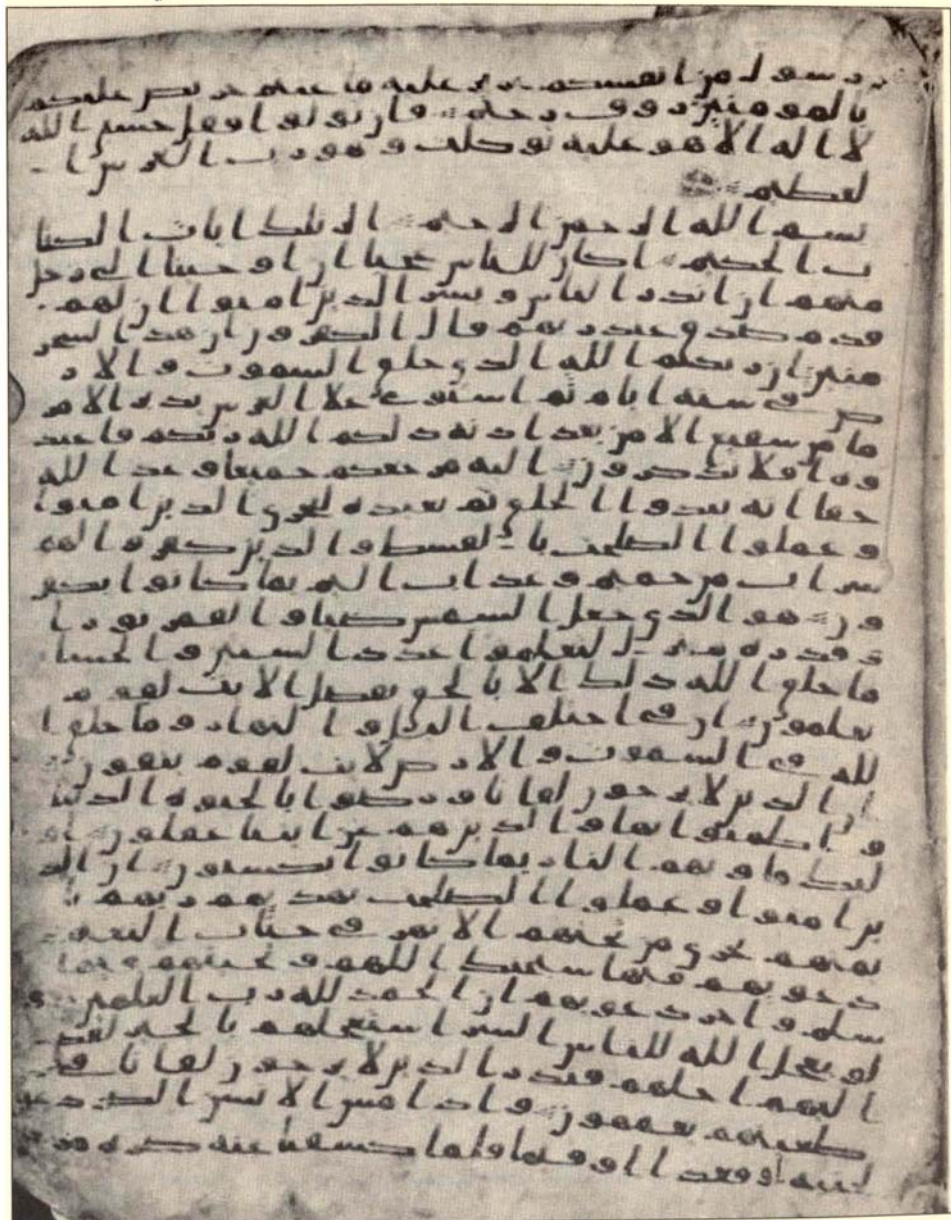 رسول من انفسكم عزيز عليه ما عنتم حريص عليكم
بالمومنين روف رحيم فان تولوا فقل حسبي الله
لا اله الا هو عليه توكلت وهو رب العرش ا
لعظيم
بسم الله الرحمن الرحيم الر تلك ايات الكتا
ب الحكيم اكان للناس عجبا ان اوحينا الى رجل
منهم ان انذر الناس وبشر الذين امنوا ان لهم
قدم صدق عند ربهم قال الكفرون ان هذا لسحر
مبين ان ربكم الله الذي خلق السموت والار
ض في ستة ايام ثم استوى علا العرش يدبر الامر
ما من شفيع الا من بعد اذنه ذلكم الله ربكم فاعبد
وه افلا تذكرون اليه مرجعكم جميعا وعد الله
حقا انه يبدوا الخلق ثم يعيده ليجزي الذين امنوا
وعملوا الصلحت بالقسط والذين كفروا لهم
شراب من حميم وعذاب اليم بما كانوا يكفر
ون هو الذي جعل الشمس ضيا والقمر نورا
وقدره منزل لتعلموا عدد السنين والحسا
ما خلق الله ذلك الا بالحق يفصل الايت لقوم
يعلمون ان في اختلف اليل والنهار وما خلق ا
لله في السموت والارض لايت لقوم يتقون
ان الذين لا يرجون لقانا ورضوا بالحيوة الدنيا
واطمنوا بها والذين هم عن ايتنا غفلون او
ليك ماويهم النار بما كانوا يكسبون ان الذ
ين امنوا وعملوا الصلحت يهديهم ربهم با
يمنهم تجري من تحتهم الانهر في جنات النعيم
دعويهم فيها سبحنك اللهم وتحيتهم فيها
سلم واخر دعويهم ان الحمد لله رب العلمين و
لو يعجل الله للناس الشر استعجلهم بالخير لقضي
اليهم اجلهم فنذر الذين لا يرجون لقانا في
طغينهم يعمهون واذا مس الانسن الضر دعا
لجنبه او قعدا او قيما فلما كشفنا عنه ضره مر